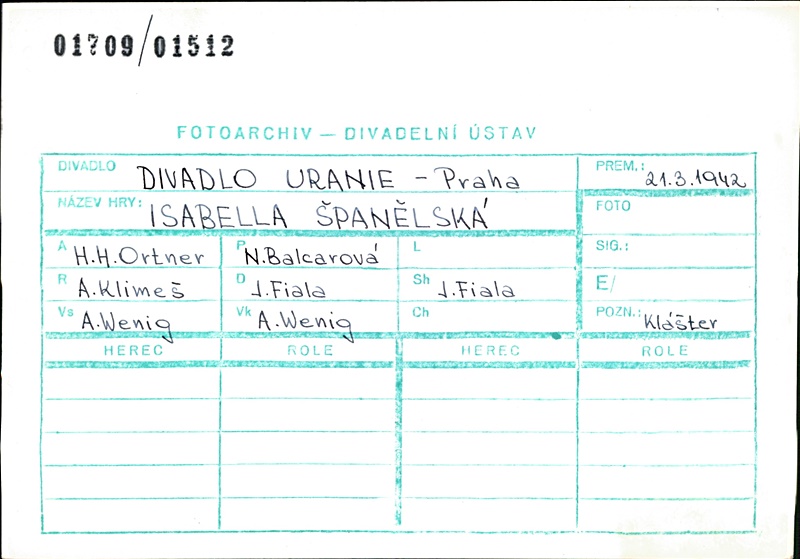 01709/01512
FOTOARCHIV — DIVADELNÍ ÚSTAV
DIVADLO DIVADLO URANIE - Praha PREM.: 21.3.1942
NÁZEV HRY: ISABELLA ŠPANĚLSKÁ FOTO
A H.H.Ortner P N.Balcarová L SIG.:
R A.Klimeš D J.Fiala Sh J.Fiala E/
Vs A.Wenig Vk A.Wenig Ch POZN.: Klášter
HEREC ROLE HEREC ROLE